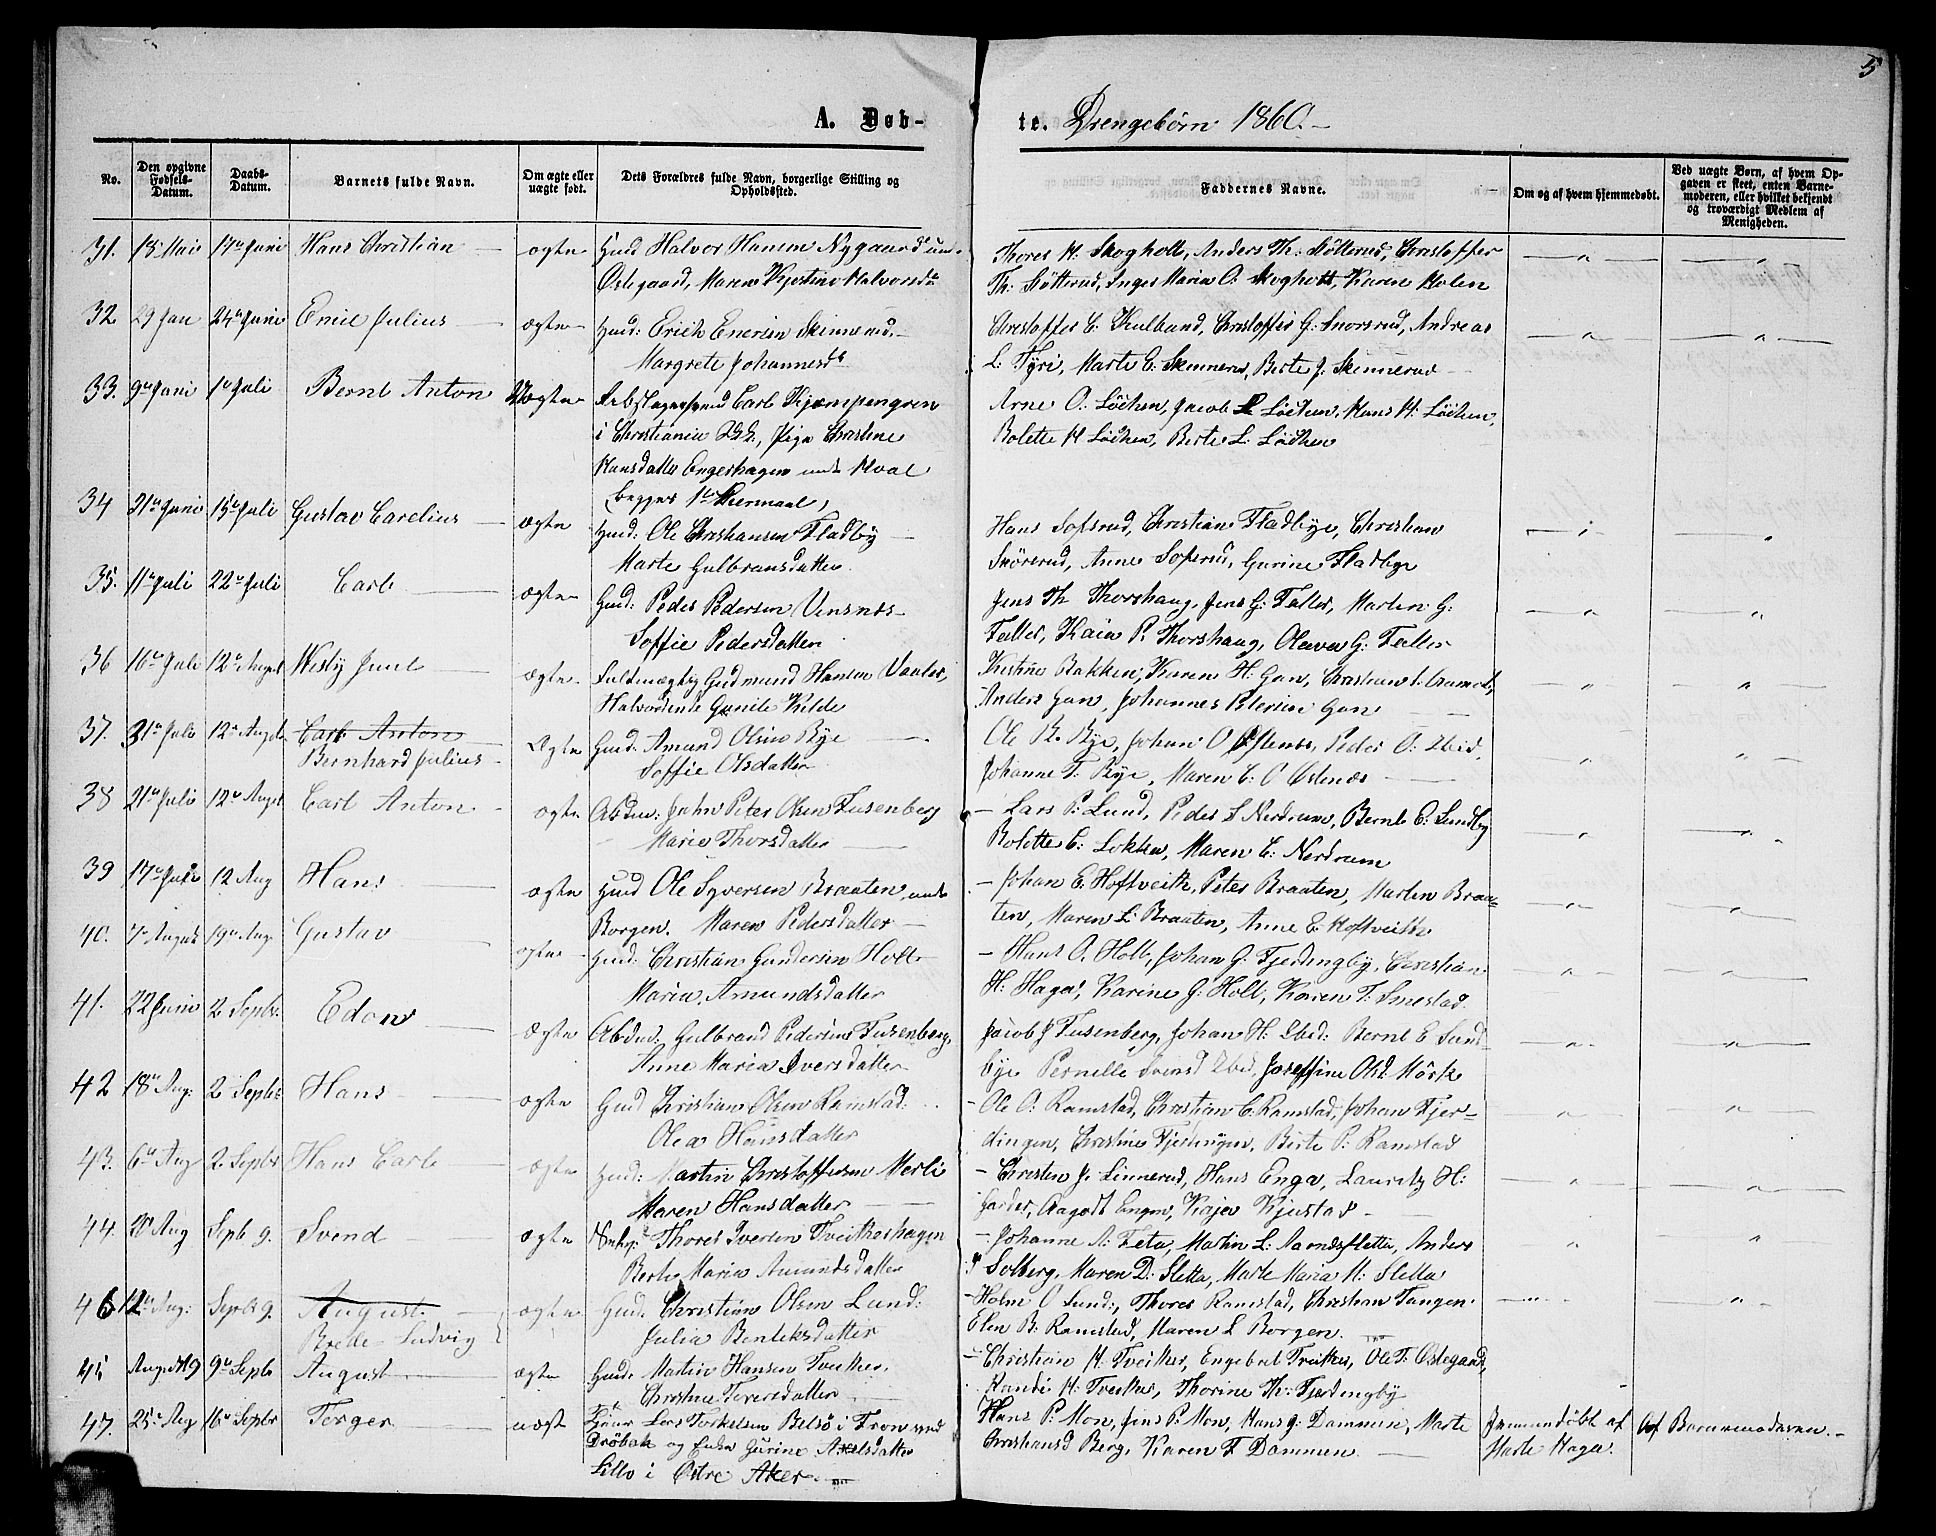 5
A. Døb-
te. Drengebørn 1860.
No.
Den opgivne Fødsels-Datum.
Daabs-Datum.
Barnets fulde Navn.
Om ægte eller uægte født.
Dets Forældres fulde Navn, borgerlige Stilling og Opholdssted.
Faddernes Navne.
Om og af hvem hjemmedøbt.
Ved uægte Børn, af hvem Opgaven er skeet, enten Barnemoderen, eller hvilket bekjendt og troværdigt Medlem af Menigheden.
31. 18 Maie 17de Juni Hans Christian ægte Huusd Halvor Hansen Nygaard und.
Østegaard, Maren Kjerstine Halvorsdtr
Thores H. Skogholt, Anders Th: Støtterud, Christoffer
Th: Støtterud, Inger Maria O. Skogholt, Karen Holen
32 29 Jan 24de Juni Emil Julius ægte Husd: Erich Enersen Skinnerud,
Margrete Johannesdtr
Christoffer C. Kulband, Christoffer G: Snorsrud, Andreas
L. Fyri, Marte E: Skinnerud, Berte J. Skinnerud
33. 9de Juni 1ste Juli Bernt Anton Uægte Carl Kjempengren
i Christiania, Pige Christine
Hansdatter Engershagen unde Hval
begges 1ste Leiermaal,
Arne O. Löchen, Jacob L Löchen, Hans H: Löchen,
Bolette H Löchen, Berte L. Löchen
34 21de Juni 15de Juli Gustav Carelius ægte Husd: Ole Christiansen Fladby
Marte Gulbransdatter
Hans Sofsrud, Christian Fladbye, Christian
Skörerud, Anne Sofsrud, Gurine Fladbye
35. 11te Juli 22de Juli Carl ægte Husd: Peder Pedersen Vensnes
Soffie Pedersdatter
Jens Th Thorshaug, Jens G: Taller, Marten G:
Taller, Kaia P. Thorshaug, Olava G: Taller
36 16de Juli 12te August Westy Juul ægte Fuldmægtig Gudmund Hansen Vaaler,
Halvordine Gunild Kilde
Kristine Bakken, Karen H. Gan,
Anders Gan, Johannes Petersen Gan
37. 31te Juli 12te August Carl Anton
Bernhard Julius
Ægte Husd. Amund Olsen Bye
Soffie Olsdatter
Ole P. Bye, Johan O Østenes, Peder O: Ibid.
Johanne T. Bye, Maren C. O Østenes
38 21de Juli 12te August Carl Anton ægte John Peter Olsen Tusenberg
Marie Thorsdatter
Lars P. Lund, Peder L Nerdrum, Bernt E: Sundby
Bolette E: Lokka, Maren E: Nerdrum
39 17de Juli 12 Aug Hans ægte Husd Ole Syversen Braaten, unde
Borgen. Maren Pedersdatter
Johan E. Hoftveith, Peter Braaten, Marten Braa-
ten, Maren L. Braaten, Anne E. Hoftveith
40. 7de August 19de Aug. Gustav ægte Husd: Christian Gundersen Holt
Maria Amundsdatter
Hans O. Holt, Johan G. Fjerdingby, Christian
H. Haga, Karine G: Holt, Karen T. Smestad.
41. 22 Juni 2 Septbr. Edon ægte Gulbrand Pedersen Tusenberg,
Anne Maria Iversdatter
Jacob J Tusenberg, Johan H: Ibid: Bernt E Sund-
bye Pernille Svensd Ibid, Joseffine Olsd Mörk
42 18de Aug: 2 Septbr: Hans ægte Husd Christian Olsen Ramstad.
Olea Hansdatter
Ole O: Ramstad, Christian C. Ramstad, Johan Fjer-
dingen, Christine Fjerdingen, Berte P. Ramstad
43. 6te Aug 2. Septbr Hans Carl ægte Husd: Martin Christoffersen Merli
Maren Hansdatter
Christen J. Linnerud, Hans Enga, Lauritz H:
Garder, Aagodt Engen, Kaja Kjustad
44. 20 Aug Septb 9. Svend ægte Thores Iversen Tveitershagen
Berte Maria Amundsdatter
Johanne A: Feta, Martin L: Aamodsletta, Anders
Solberg, Maren D: Sletta, Marte Maria M: Sletta
46 12te Aug: Septbr 9. August.
Brede Ludvig
ægte Husd. Christian Olsen Lund.
Julia Bentehsdatter
Holm O Lund, Thores Ramstad, Christian Tangen
Elen B. Ramstad, Maren L Borgen.
45 August 19 9de Septbr August ægte Husd. Martin Hansen Tveiter.
Christine Toversdatter
Christian H. Tveiter, Engebret Tveiter, Ole T: Østegaard,
Randi H. Tveiter, Thorine Th: Fjerdingby
47. 25de Aug 16de Septbr Torger uægt Lars Torkelsen Belsö i Fron ved
Dröbak og Enke Gurine Axelsdatter
Lillo i Østre Aker
Hans P. Mon, Jens P. Mon, Hans J: Dammen, Marte
Christiansd Berg, Karen F Dammen
Hjemmedöbt af
Marte Haga.
Af Barnemoderen.